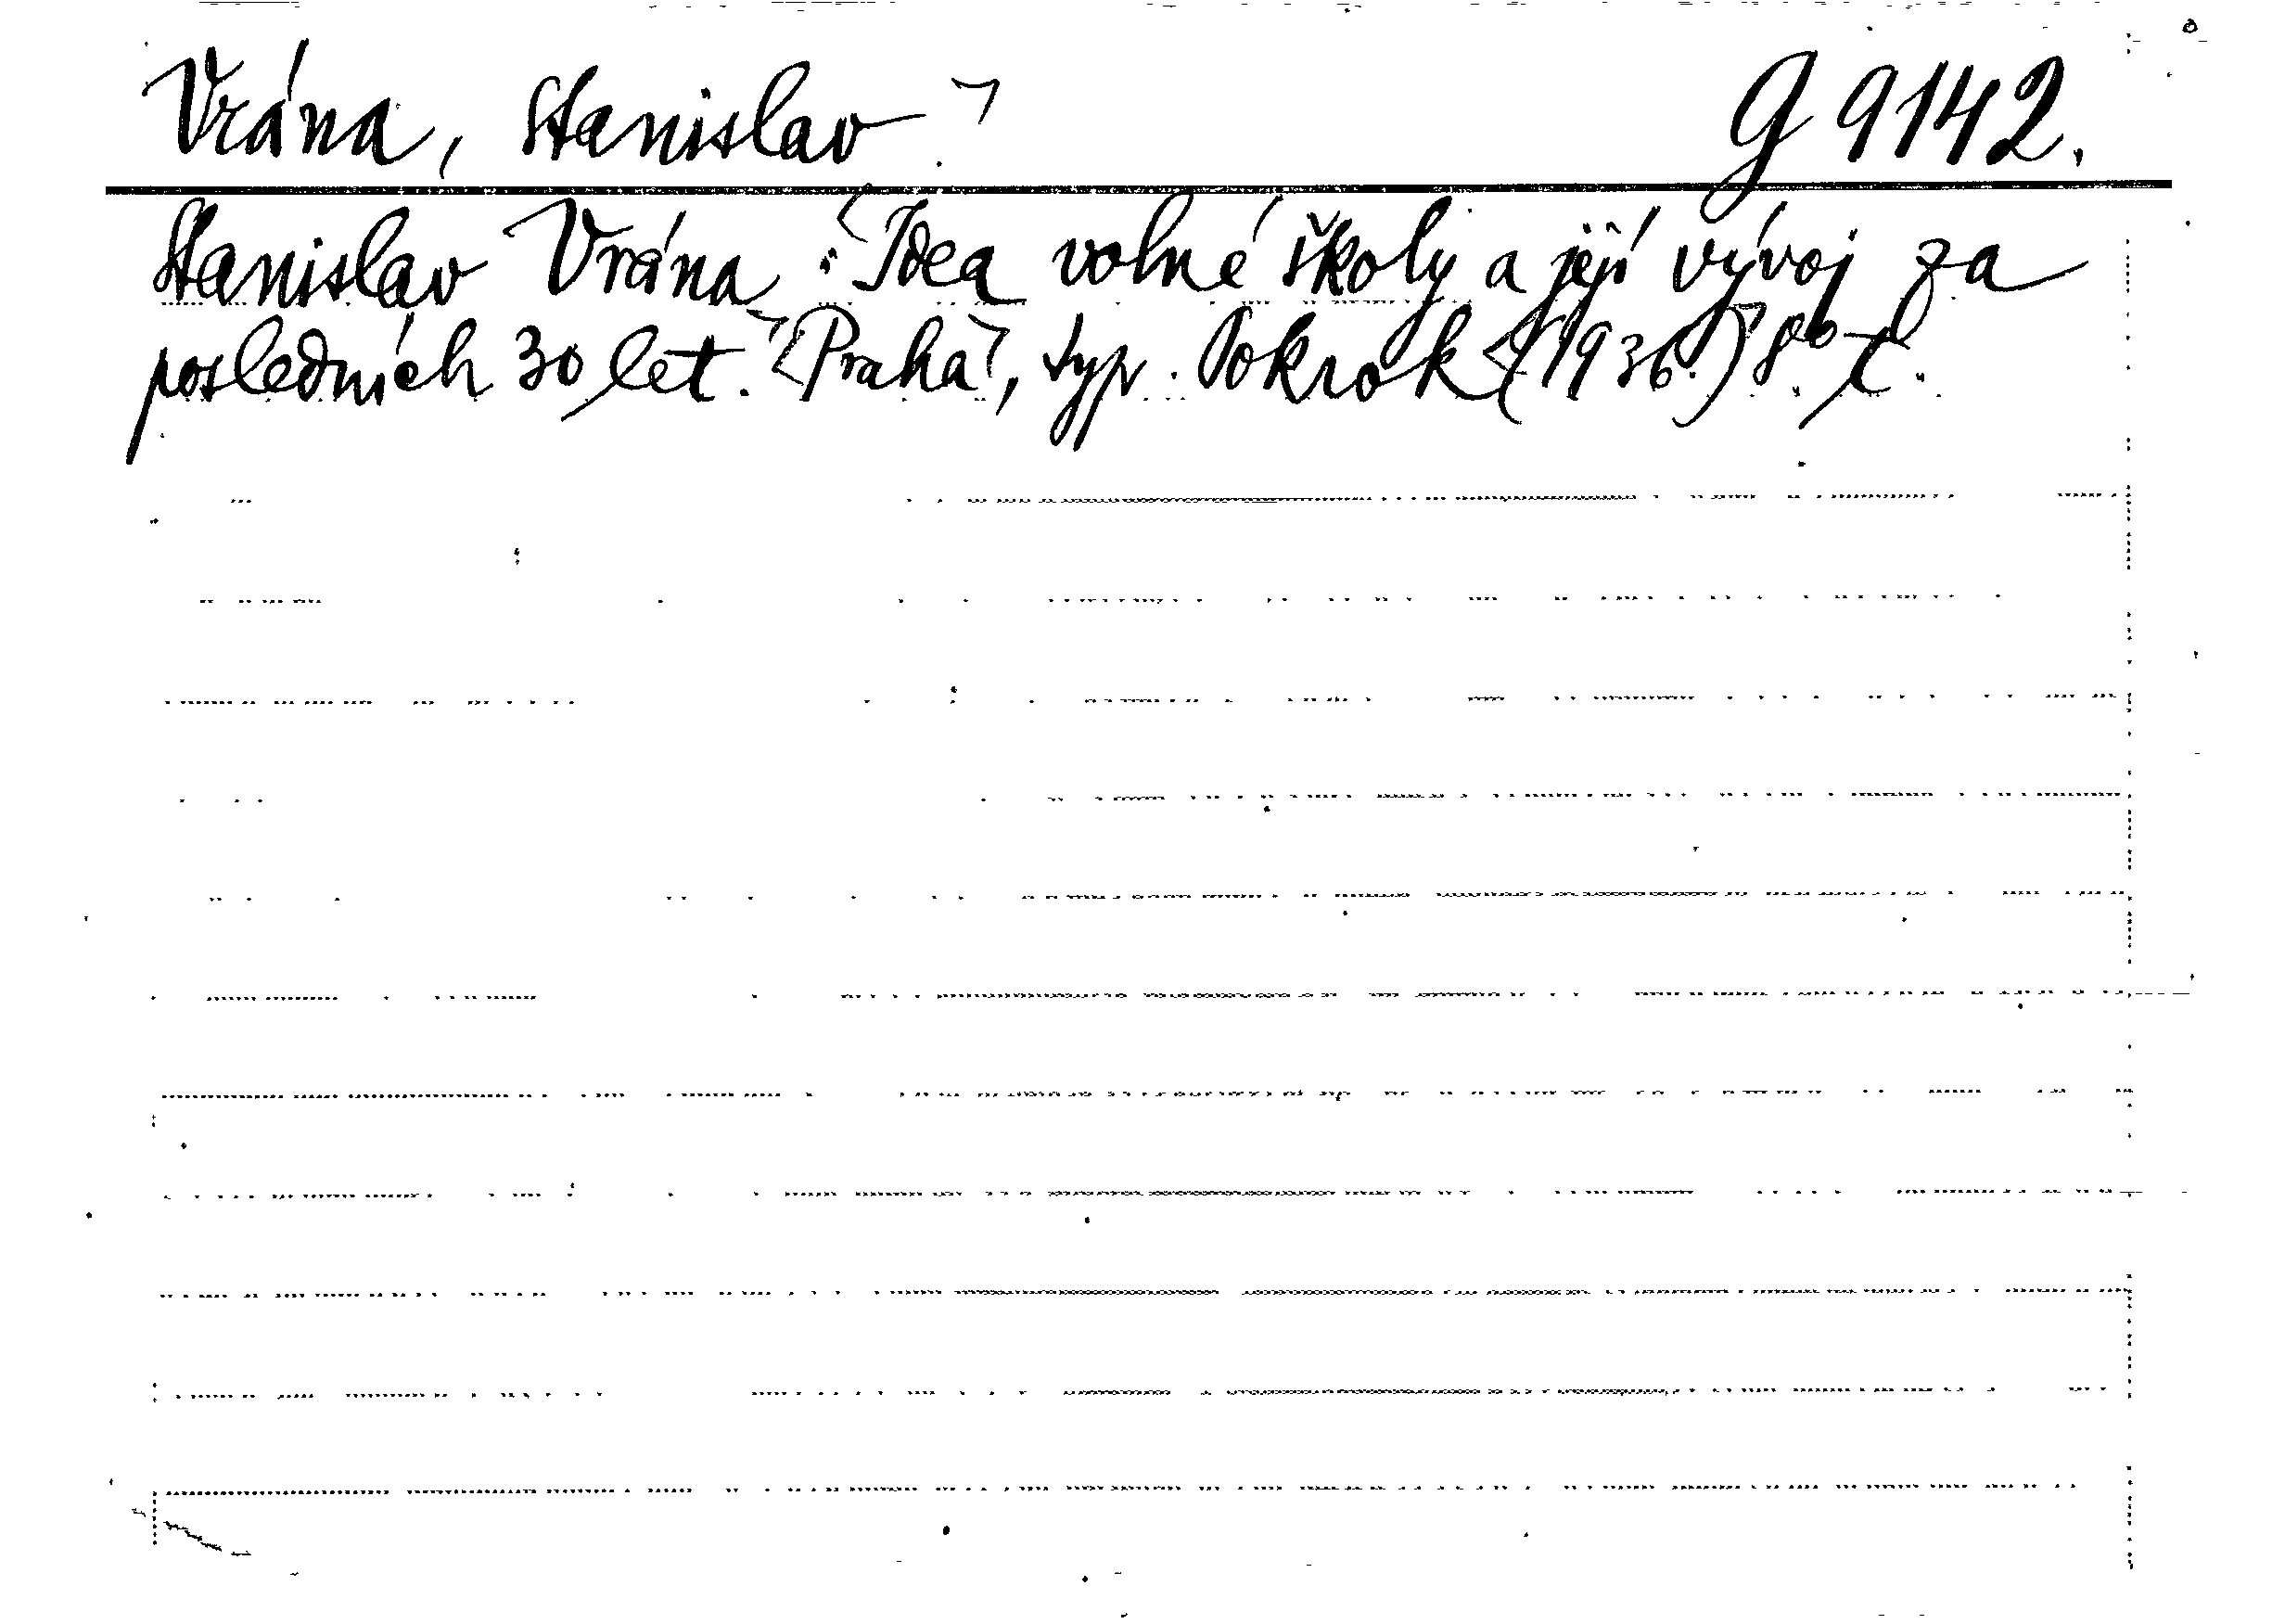 Vrána, Stanislav ¬ G 9142.
Stanislav Vrána: Idea volné školy a její vývoj za
posledních 30 let. Praha, typ. Pokrok (1936.) 8°.